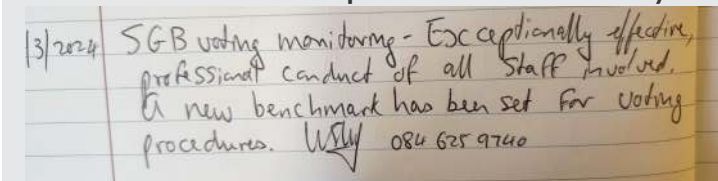 13/2024 SGB voting monitoring - Exceptionally effective,
professional conduct of all staff involved.
A new benchmark has been set for voting
procedures. 084 625 9740